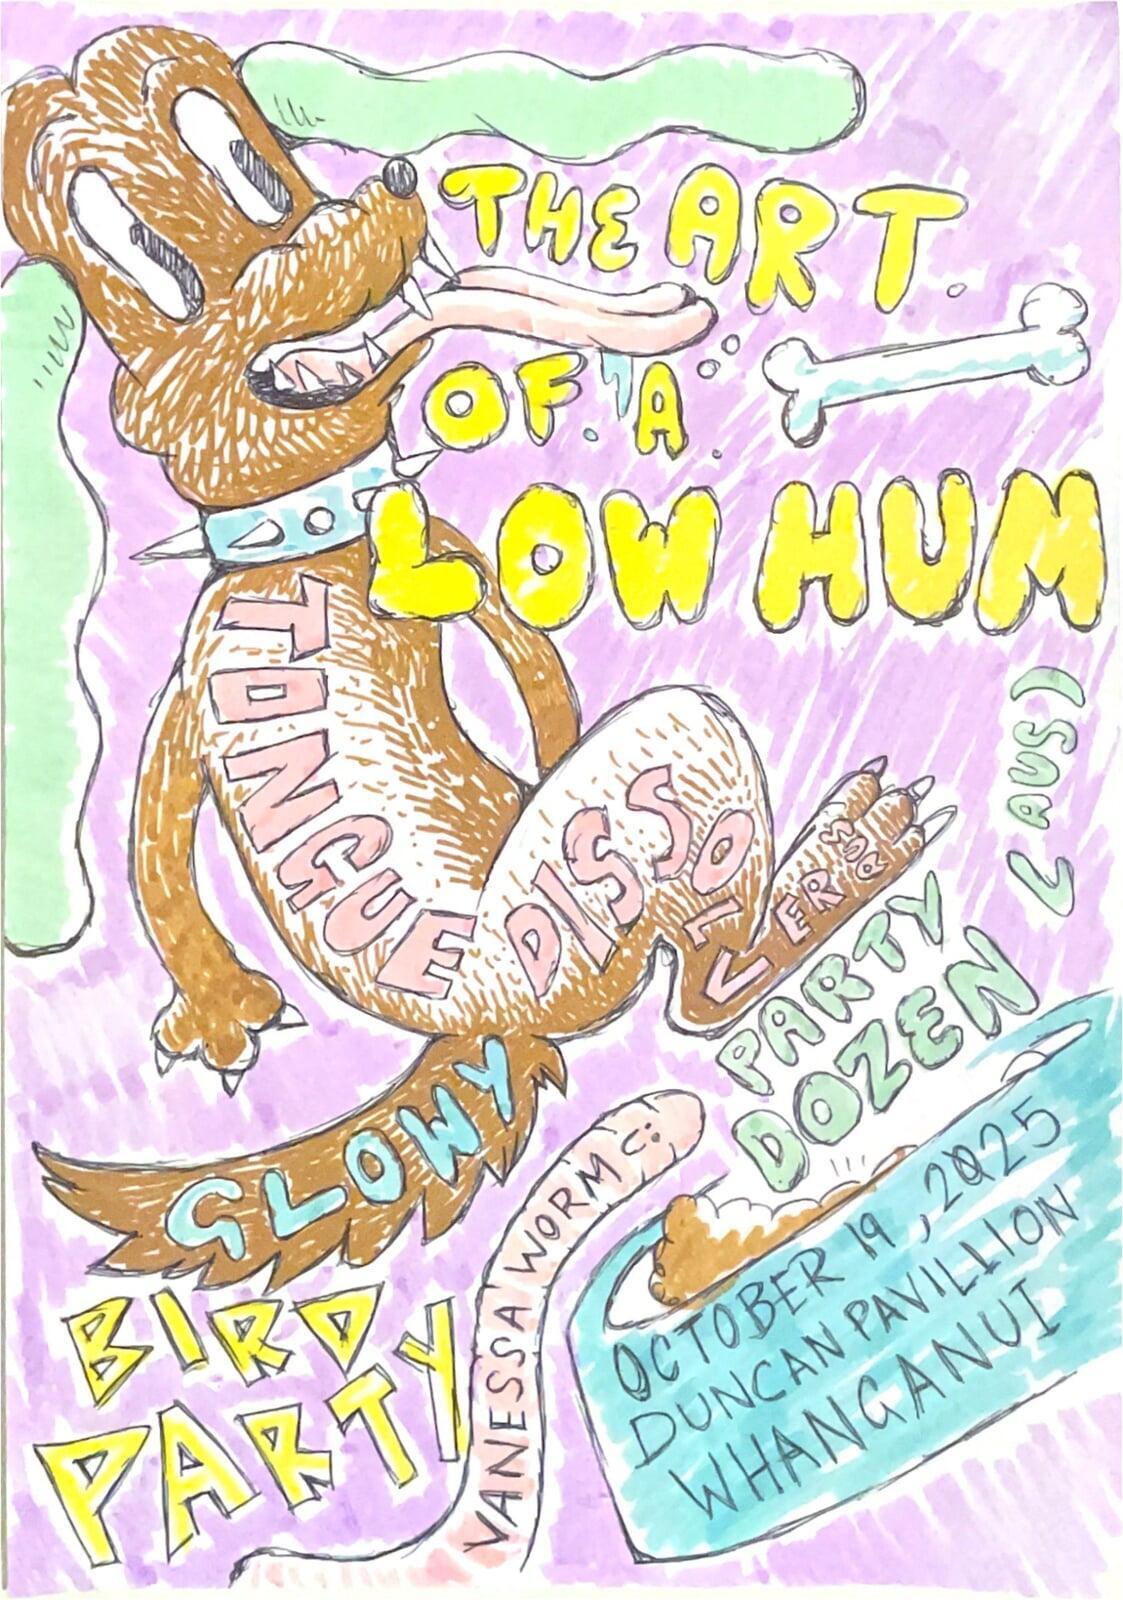 THE ART
OF A
LOW HUM
TONGUE
DISSOLVER
(AUS)
PARTY
DOZEN
GLOWY
VANESSA WORM
BIRD
PARTY
OCTOBER 19, 2025
DUNCAN PAVILLION
WHANGANUI